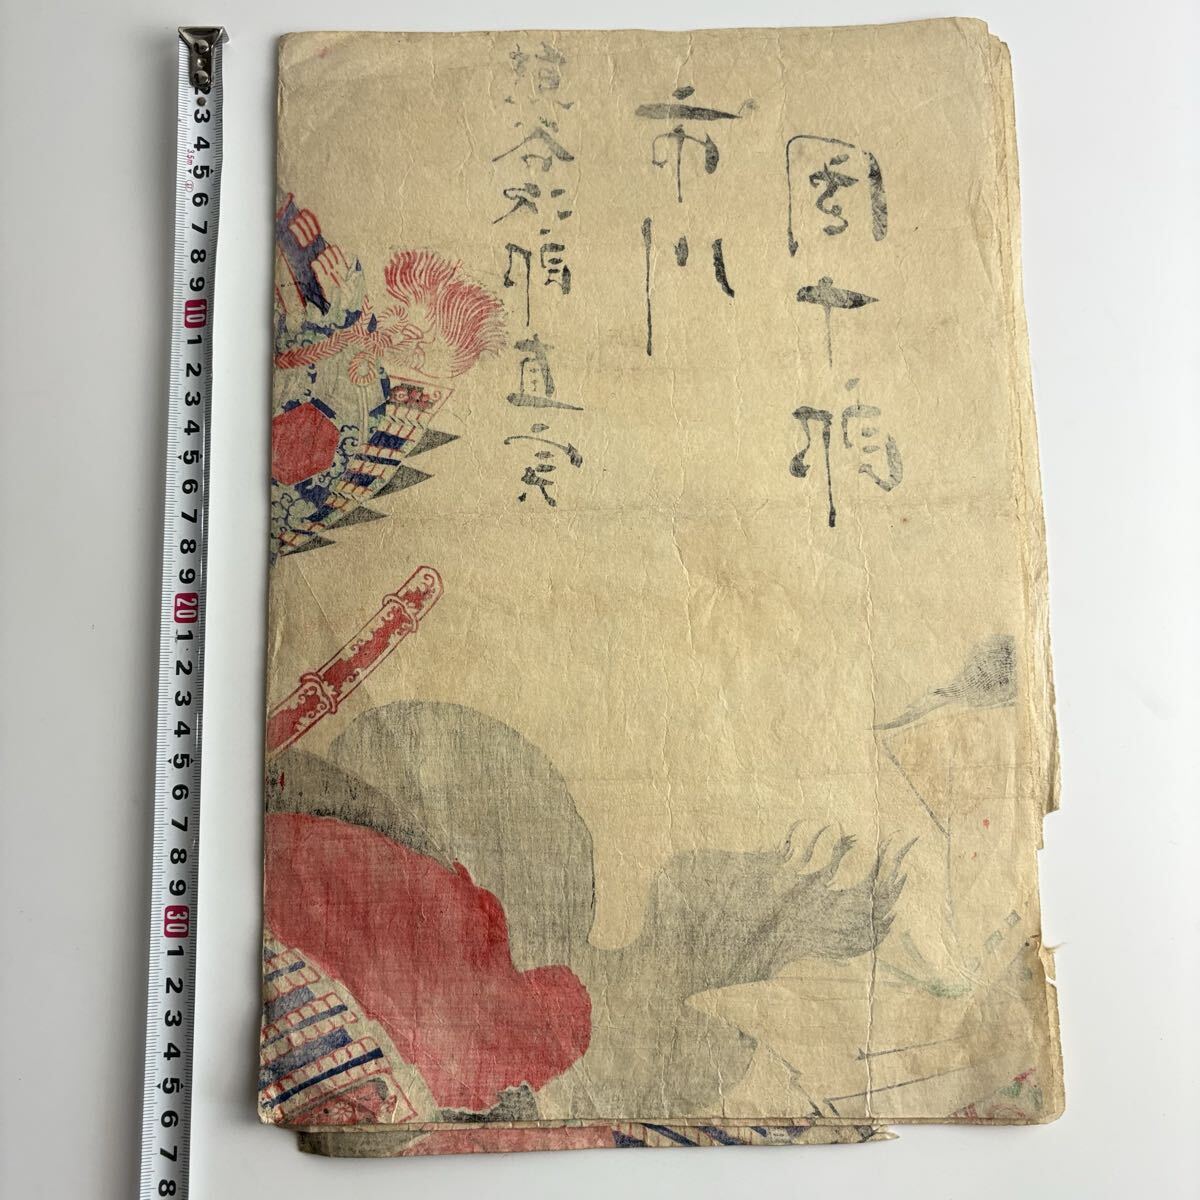 熊谷次郎直実
市川
團十郎
2 3 4 5 6 7 8 9 10 1 2 3 4 5 6 7 8 9 20 1 2 3 4 5 6 7 8 9 30 1 2 3 4 5 6 7 8
3.5m